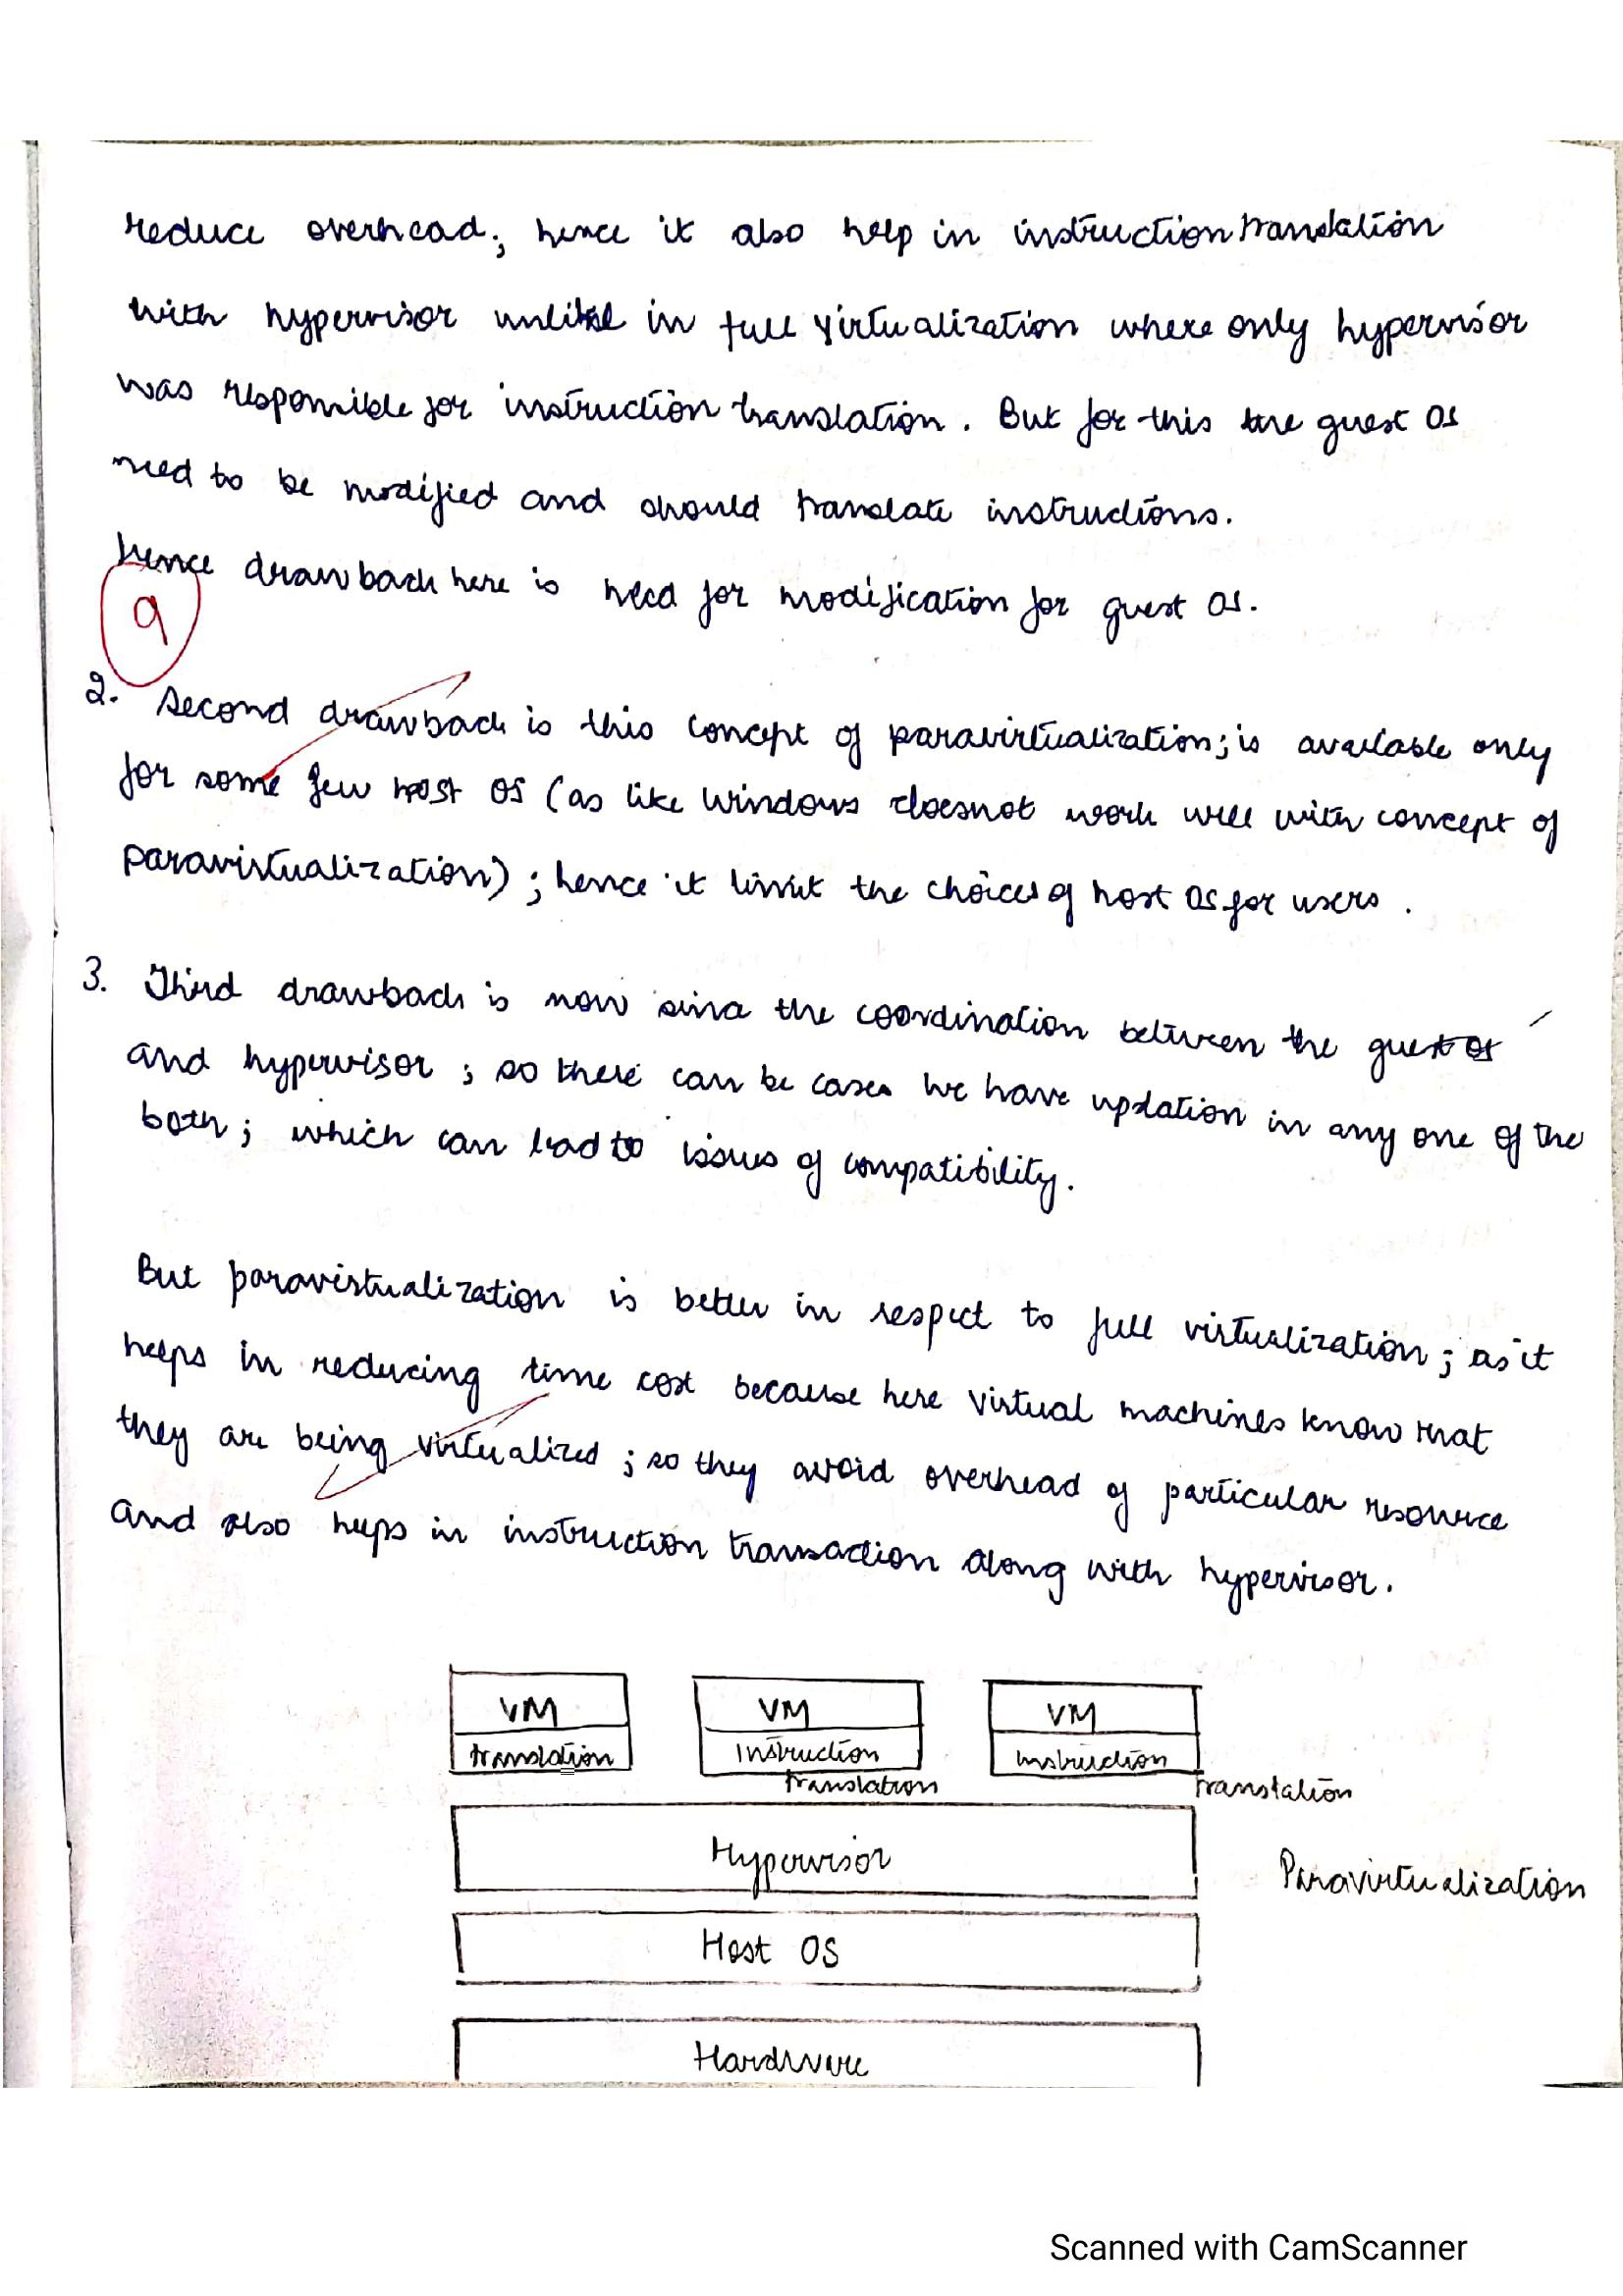 reduce overhead; hence it also help in instruction translation
with hypervisor unlike in full virtualization where only hypervisor
was responsible for instruction translation. But for this the guest OS
need to be modified and should translate instructions.
hence drawback here is need for modification for guest OS.
9
2. Second drawback is this concept of paravirtualization; is available only
for some few host OS (as like Windows doesnot work well with concept of
paravirtualization); hence it limit the choices of host OS for users.
3. Third drawback is now since the coordination between the guest OS
and hypervisor; so there can be cases we have updation in any one of the
both; which can lead to issues of compatibility.
But paravirtualization is better in respect to full virtualization; as it
helps in reducing time cost because here virtual machines know that
they are being virtualized; so they avoid overhead of particular resource
and also helps in instruction transaction along with hypervisor.
VM VM VM
translation Instruction Instruction
translation translation
Hypervisor
Paravirtualization
Host OS
Hardware
Scanned with CamScanner